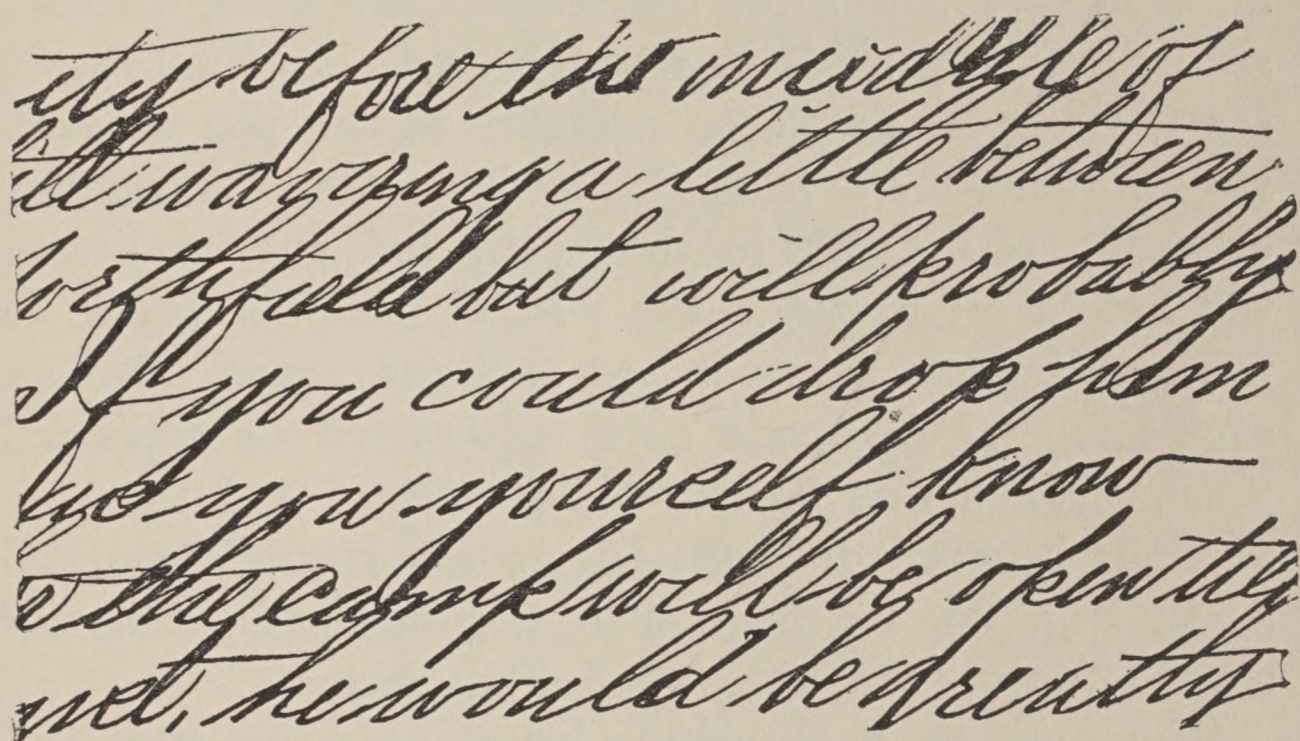 ity before the middle of
ill varying a little between
orthfield but will probably
If you could drop him
you yourself know
the camp will be open til
he would be greatly